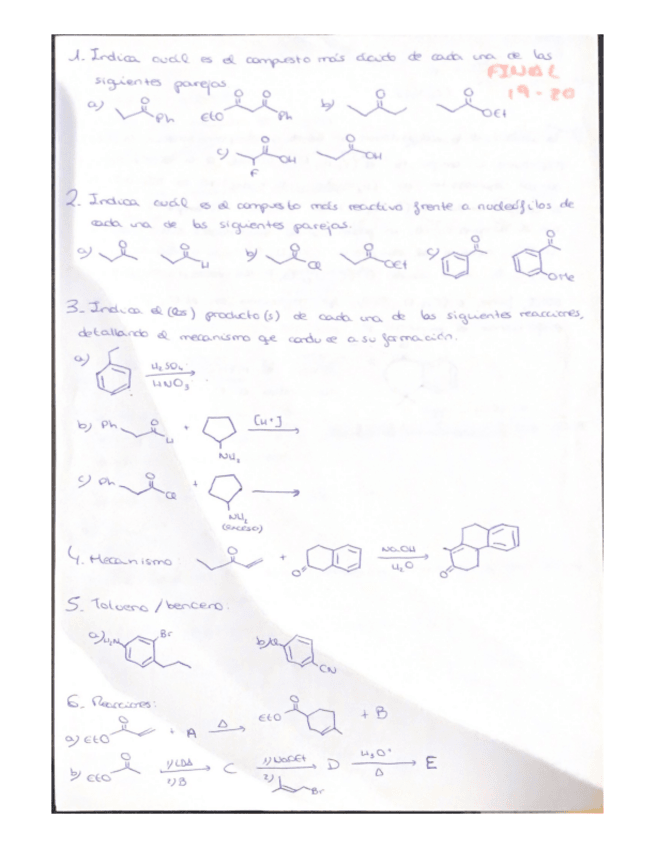 1. Indica cuál es el compuesto más ácido de cada una de las
siguientes parejas
FINAL
19-20
a) O Ph EtO O O Ph b) O O OEt
c) O OH F O OH
2. Indica cuál es el compuesto más reactivo frente a nucleófilos de
cada una de las siguientes parejas.
a) O O H b) O Cl O OEt c) O O OMe
3- Indica el (los) producto(s) de cada una de las siguientes reacciones,
detallando el mecanismo que conduce a su formación.
a) H2SO4 HNO3
b) Ph O H + NH2 [H+]
c) Ph O Cl + NH2 (EXCESO)
4. Mecanismo: O + O NaOH H2O O
5- Tolueno / benceno:
a) H2N Br b) CN
6- Reacciones:
a) EtO O + A Δ EtO O + B
b) EtO O 1) LDA 2) B C 1) NaOEt 2) Br D H3O+ Δ E